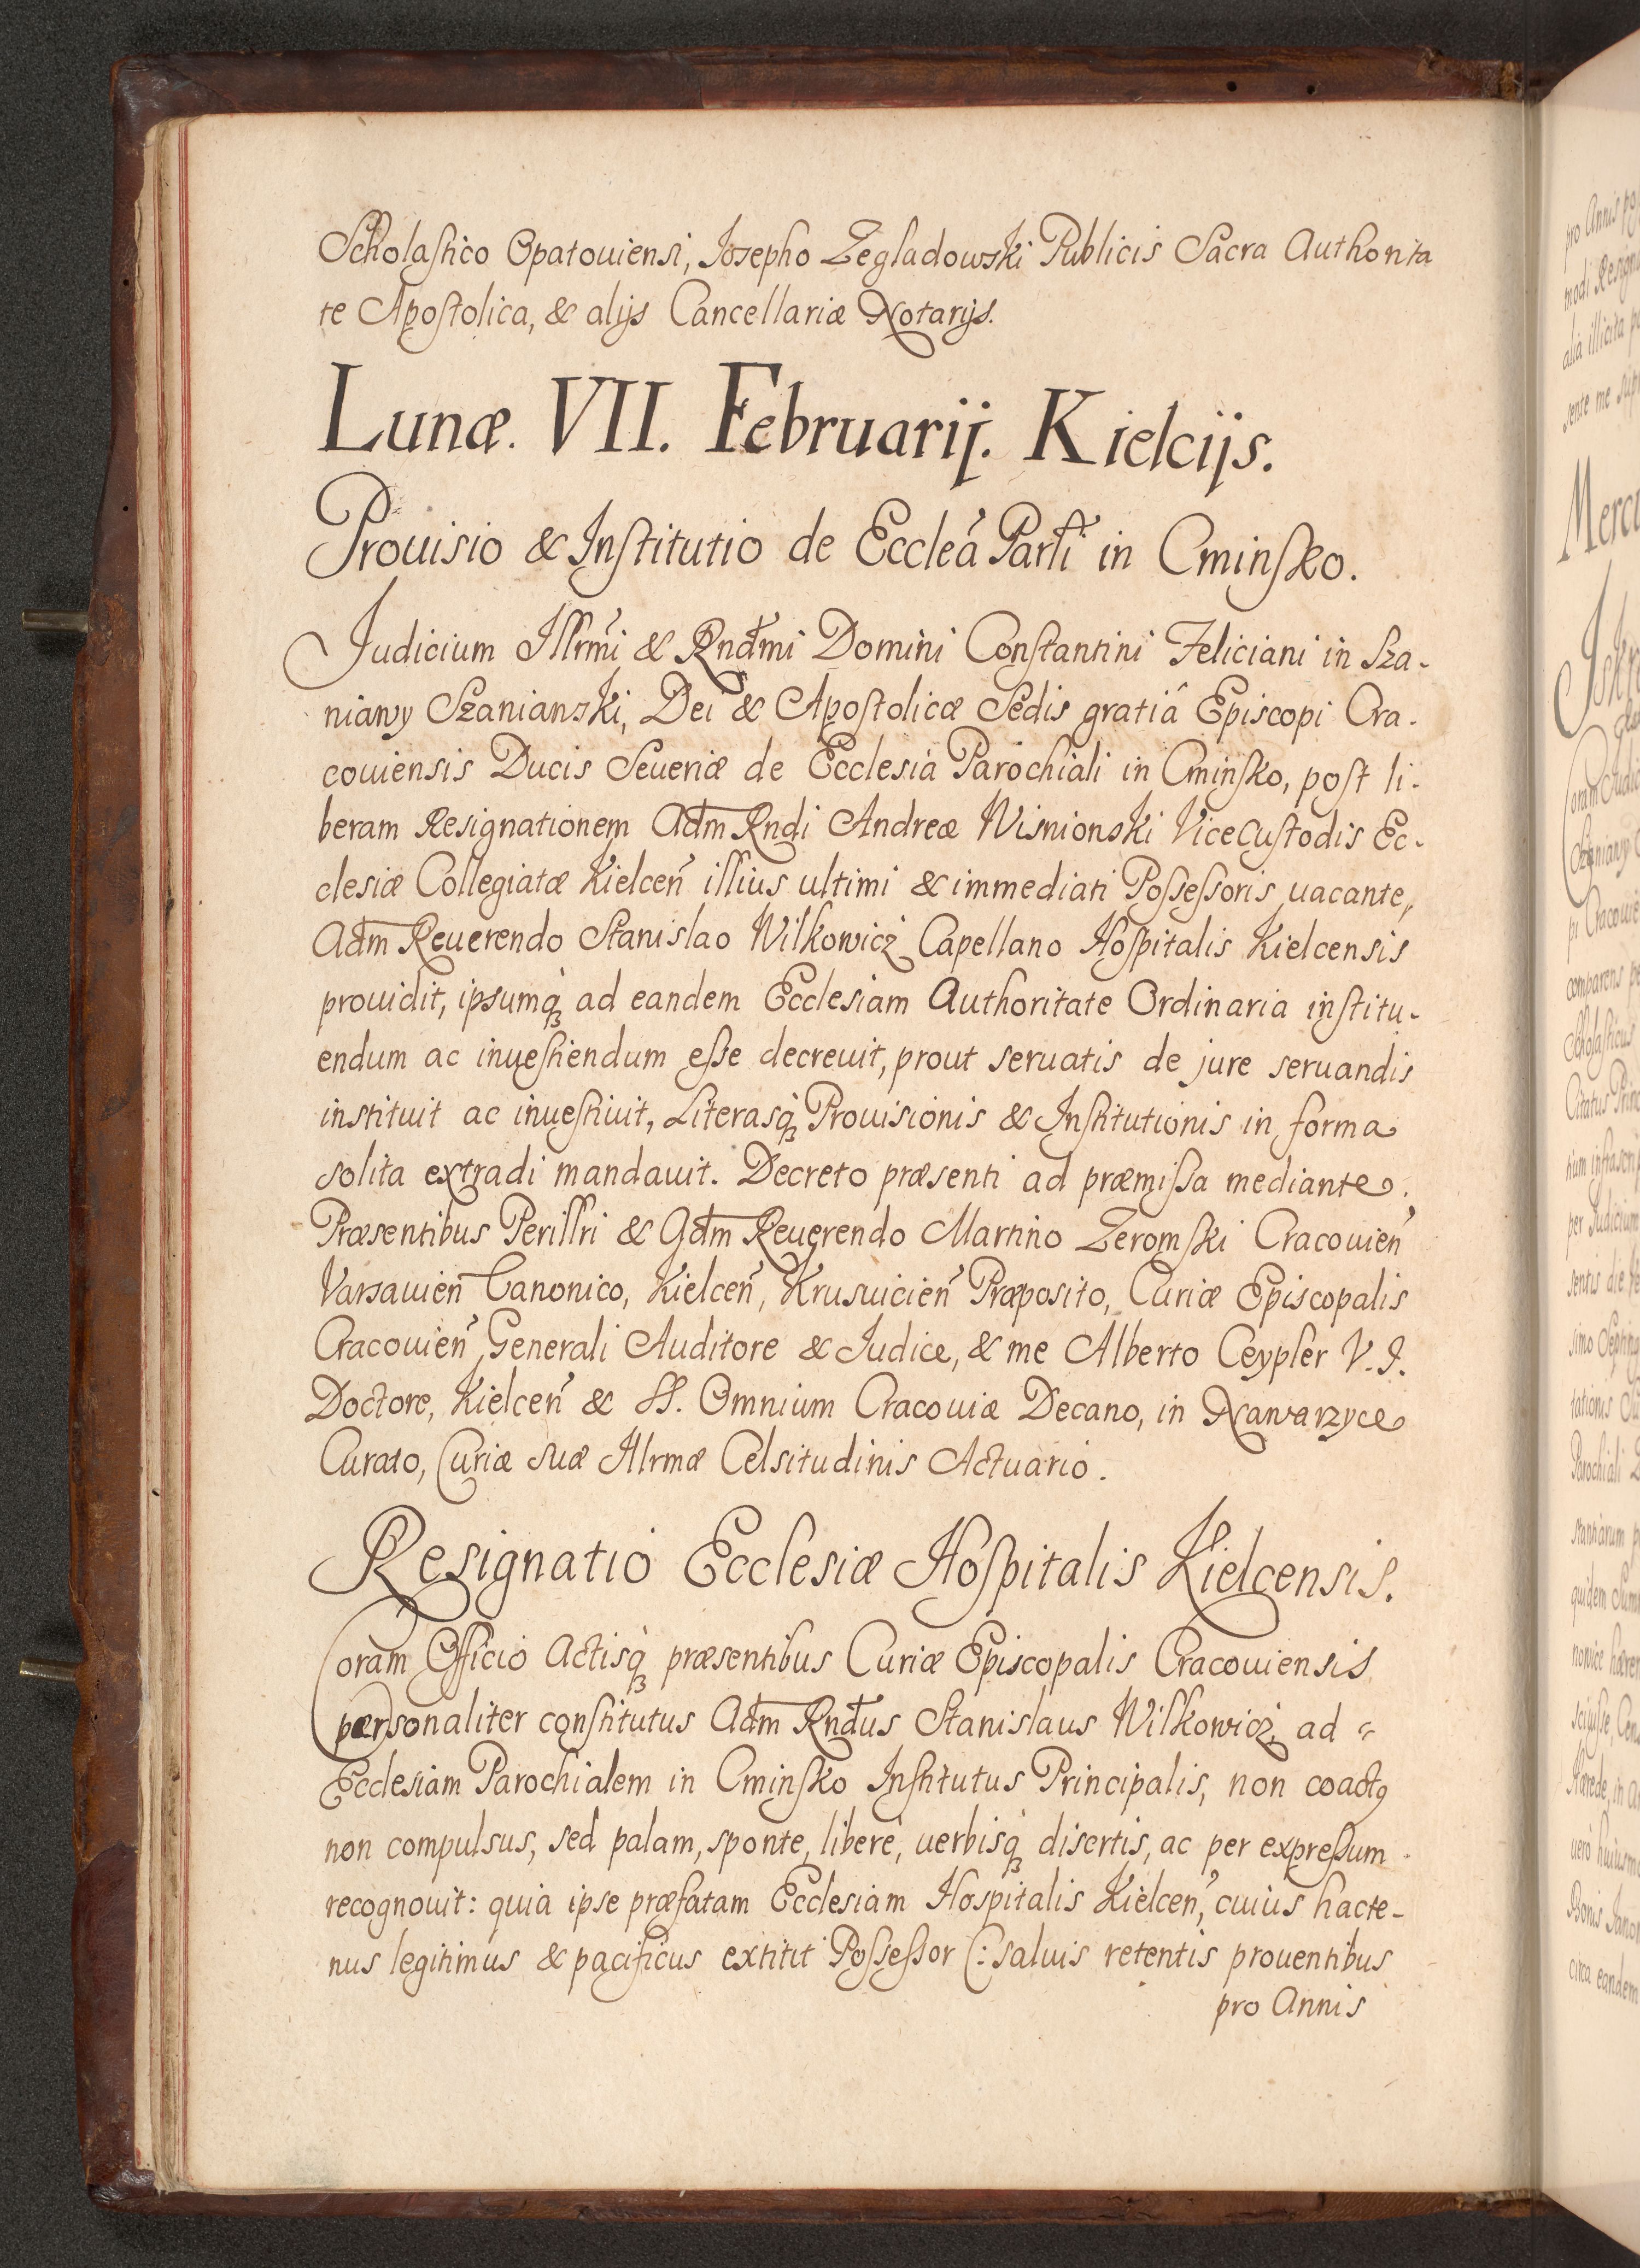 Scholastico Opatouiensi, Josepho Zegladowski Publicis Sacra Authorita
te Apostolica, & alijs Cancellariæ Notarijs.
Lunæ. VII. Februarij. Kielcijs.
Prouisio & Institutio de Eccleâ Parli in Cminsko.
Judicium Illrmi & Rndmi Domini Constantini Feliciani in Sza-
niawy Szaniawski, Dei & Apostolicæ Sedis gratiâ Episcopi Cra-
couiensis Ducis Seueriæ de Ecclesia Parochiali in Cminsko, post li-
beram Resignationem Adm Rndi Andreæ Wisnionski ViceCustodis Ec-
clesiæ Collegiatæ Kielcen illius ultimi & immediati Possessoris uacante,
Adm Reuerendo Stanislao Wilkowicz Capellano Hospitalis Kielcensis
prouidit, ipsumq ad eandem Ecclesiam Authoritate Ordinaria institu-
endum ac inuestiendum esse decreuit, prout seruatis de jure seruandis
instituit ac inuestiuit, Literasq Prouisionis & Institutionis in forma
solita extradi mandauit. Decreto præsenti ad præmissa mediante.
Præsentibus Perillri & Adm Reuerendo Martino Zeromski Cracouien
Varsauien Canonico, Kielcen, Krusuicien Præposito, Curiæ Episcopalis
Cracouien Generali Auditore & Iudice, & me Alberto Ceypler V. J.
Doctore, Kielcen & SS. Omnium Cracouiæ Decano, in Nawarzyce
Curato, Curiæ suæ Illrmæ Celsitudinis Actuario.
Resignatio Ecclesiæ Hospitalis Kielcensis.
Coram Officio Actisq præsentibus Curiæ Episcopalis Cracouiensis
personaliter constitutus Adm Rndus Stanislaus Wilkowicz, ad
Ecclesiam Parochialem in Cminsko Institutus Principalis, non coactꝯ
non compulsus, sed palam, sponte, liberè, uerbisq disertis, ac per expressum
recognouit: quia ipse præfatam Ecclesiam Hospitalis Kielcen, cuius hacte-
nus legitimus & pacificus extitit Possessor (: saluis retentis prouentibus
pro Annis